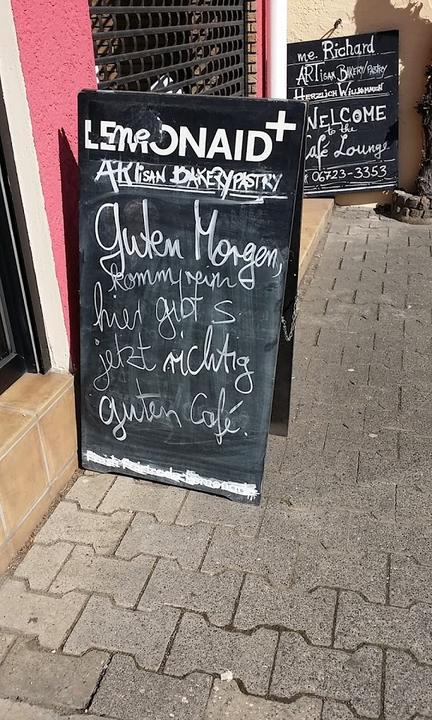 LEMONAID+
me.
ARTisan BAKERY/PASTRY
Guten Morgen,
komm rein
hier gibt's
jetzt richtig
guten Café.
me. Richard
ARTisan BAKERY/PASTRY
HERZLICH WILLKOMMEN
WELCOME
to the
Café Lounge
06723-3353